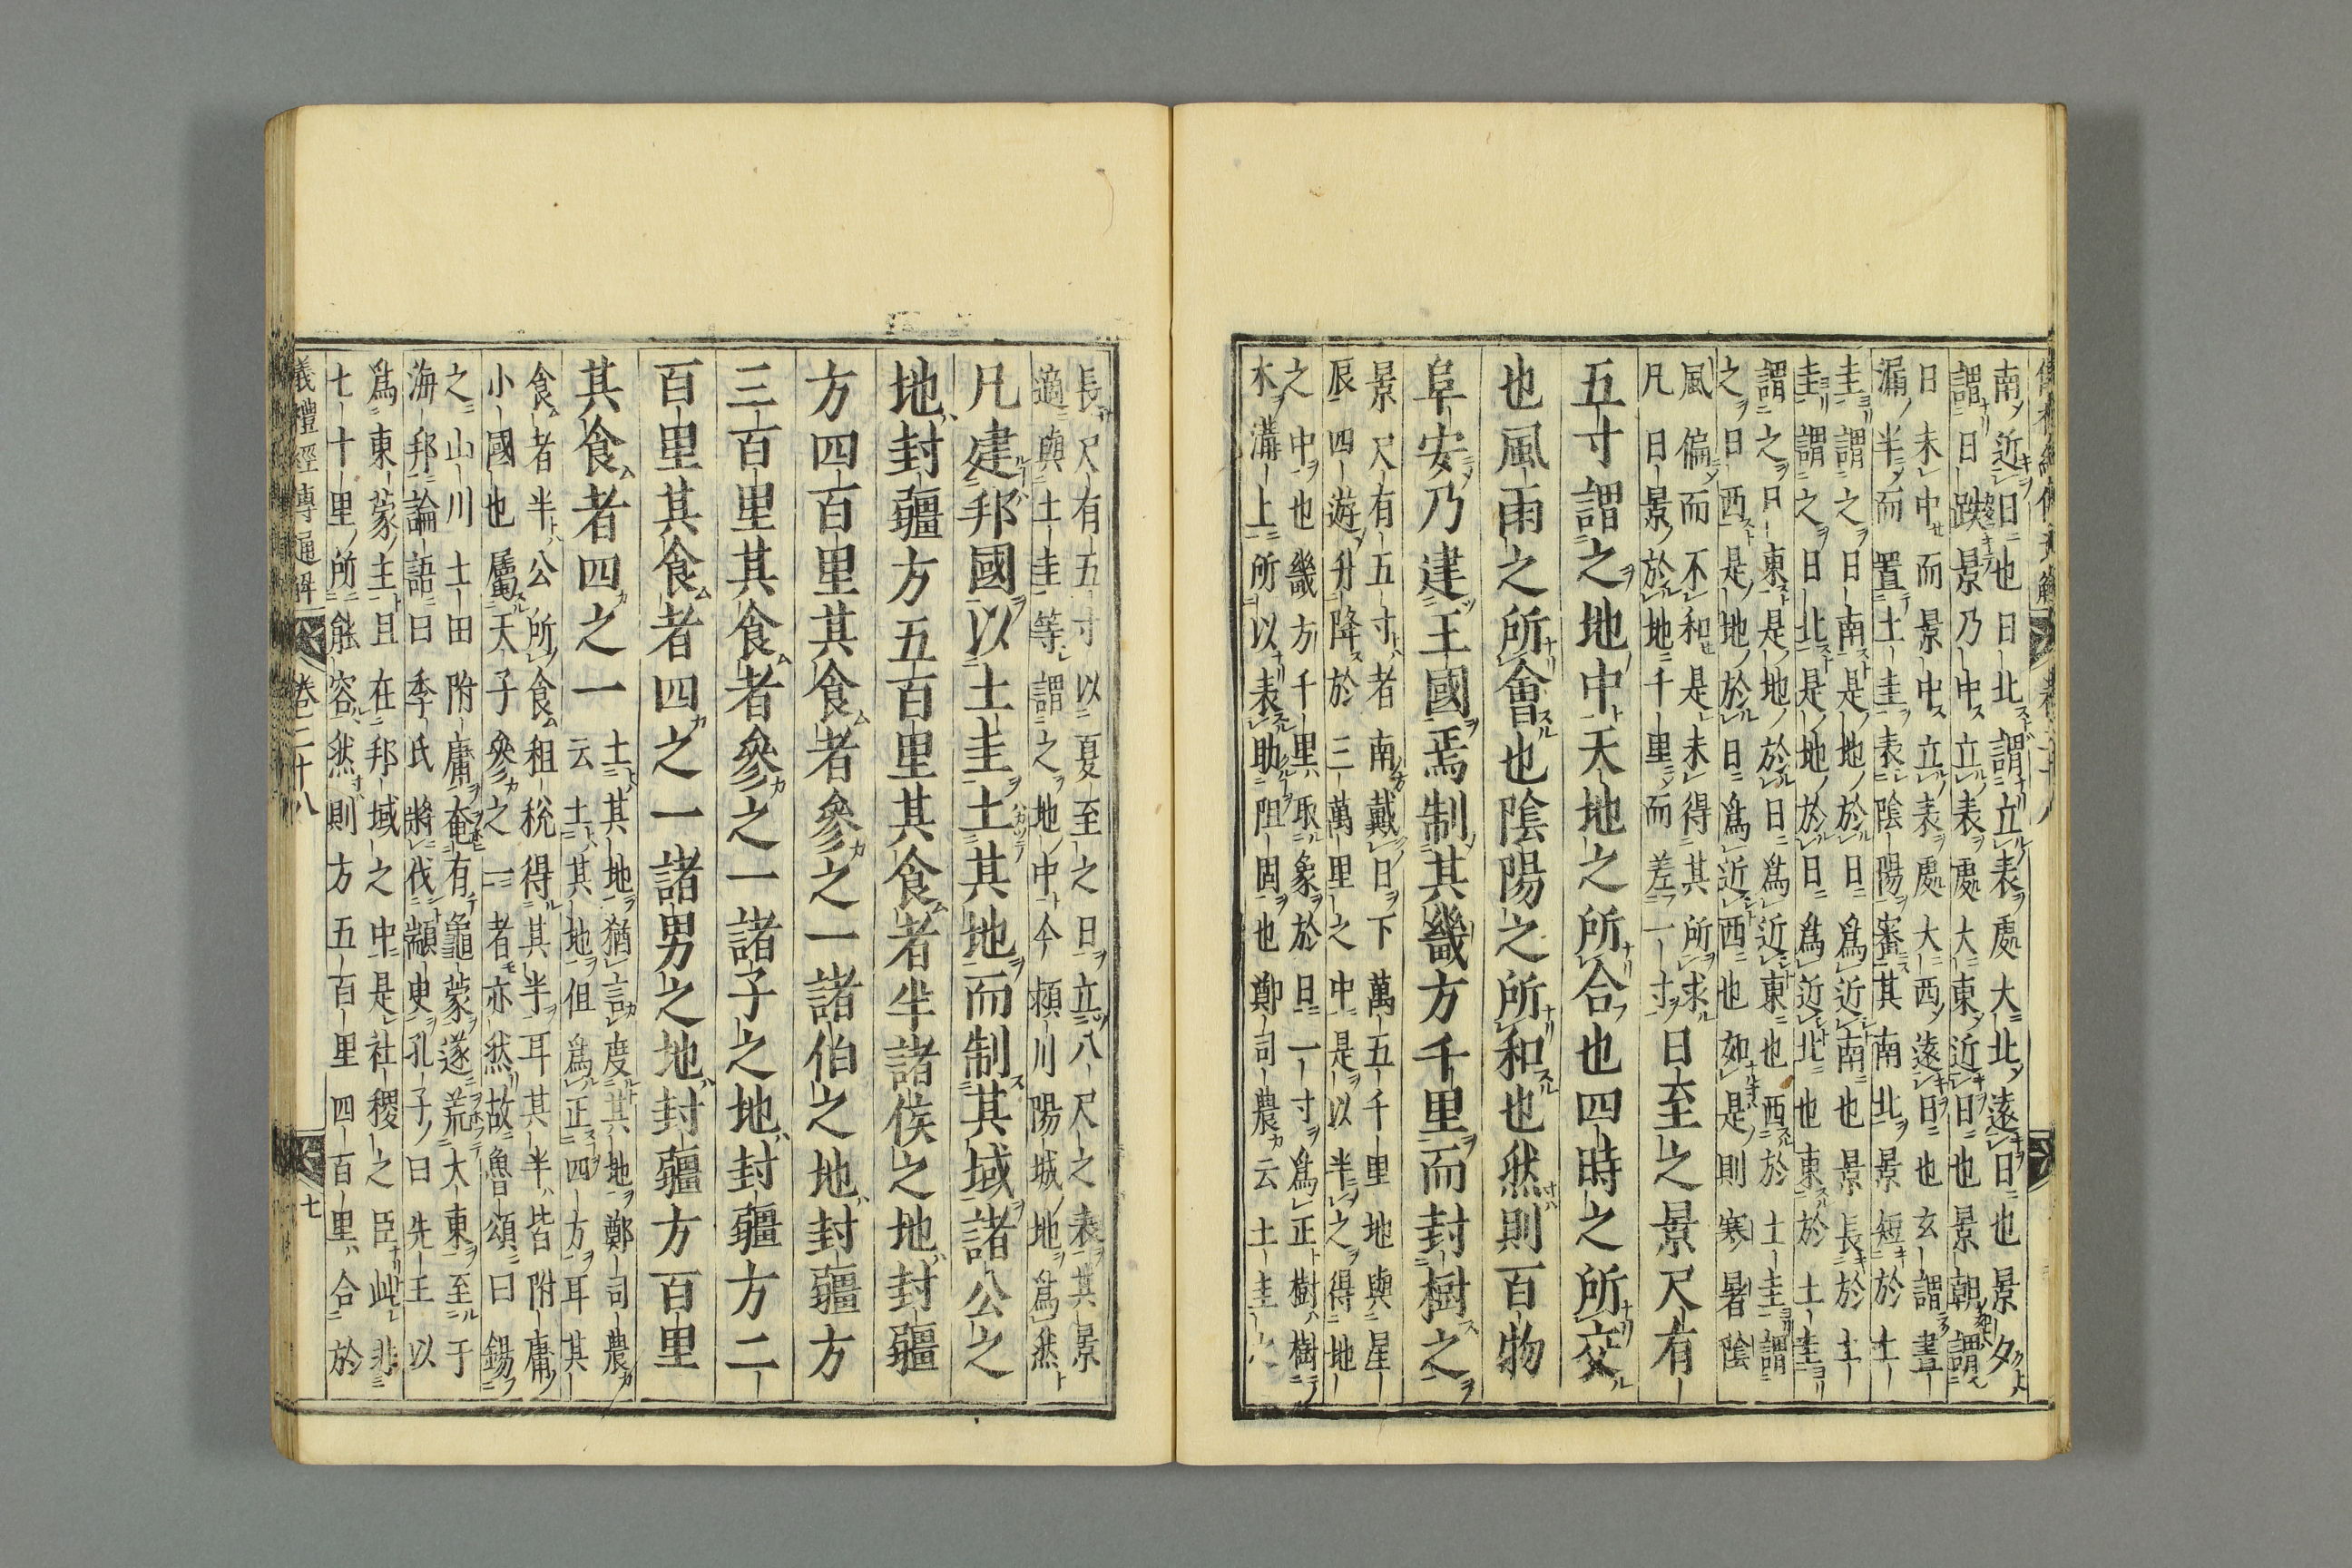 南近日也日北謂立表處大北遠日也景夕
謂日跌景乃中立表處大東近日也景朝謂
日未中而景中立表處大西遠日也玄謂晝
漏半而置土圭表陰陽審其南北景短於土
圭謂之日南是地於日爲近南也景長於土
圭謂之日北是地於日爲近北也東於土圭
謂之日東是地於日爲近東也西於土圭謂
之日西是地於日爲近西也如是則寒暑陰
風偏而不和是未得其所求
凡日景於地千里而差一寸
日至之景尺有
五寸謂之地中天地之所合也四時之所交
也風雨之所會也陰陽之所和也然則百物
阜安乃建王國焉制其畿方千里而封樹之
景尺有五寸者南戴日下萬五千里地與星
辰四遊升降於三萬里之中是以半之得地
之中也畿方千里取象於日一寸爲正樹樹
木溝上所以表助阻固也鄭司農云土圭
長尺有五寸以夏至之日立八尺之表其景
適與土圭等謂之地中今潁川陽城地爲然
凡建邦國以土圭土其地而制其域諸公之
地封疆方五百里其食者半諸侯之地封疆
方四百里其食者參之一諸伯之地封疆方
三百里其食者參之一諸子之地封疆方二
百里其食者四之一諸男之地封疆方百里
其食者四之一
土其地猶言度其地鄭司農
云土其地但爲正四方耳其
食者半公所食租稅得其半耳其半皆附庸
小國也屬天子參之一者亦然故魯頌曰錫
之山川土田附庸奄有龜蒙遂荒大東至于
海邦論語曰季氏將伐顓臾孔子曰先王以
爲東蒙主且在邦域之中是社稷之臣此非
七十里所能容然則方五百里四百里合於
儀禮經傳通解
卷二十八
七